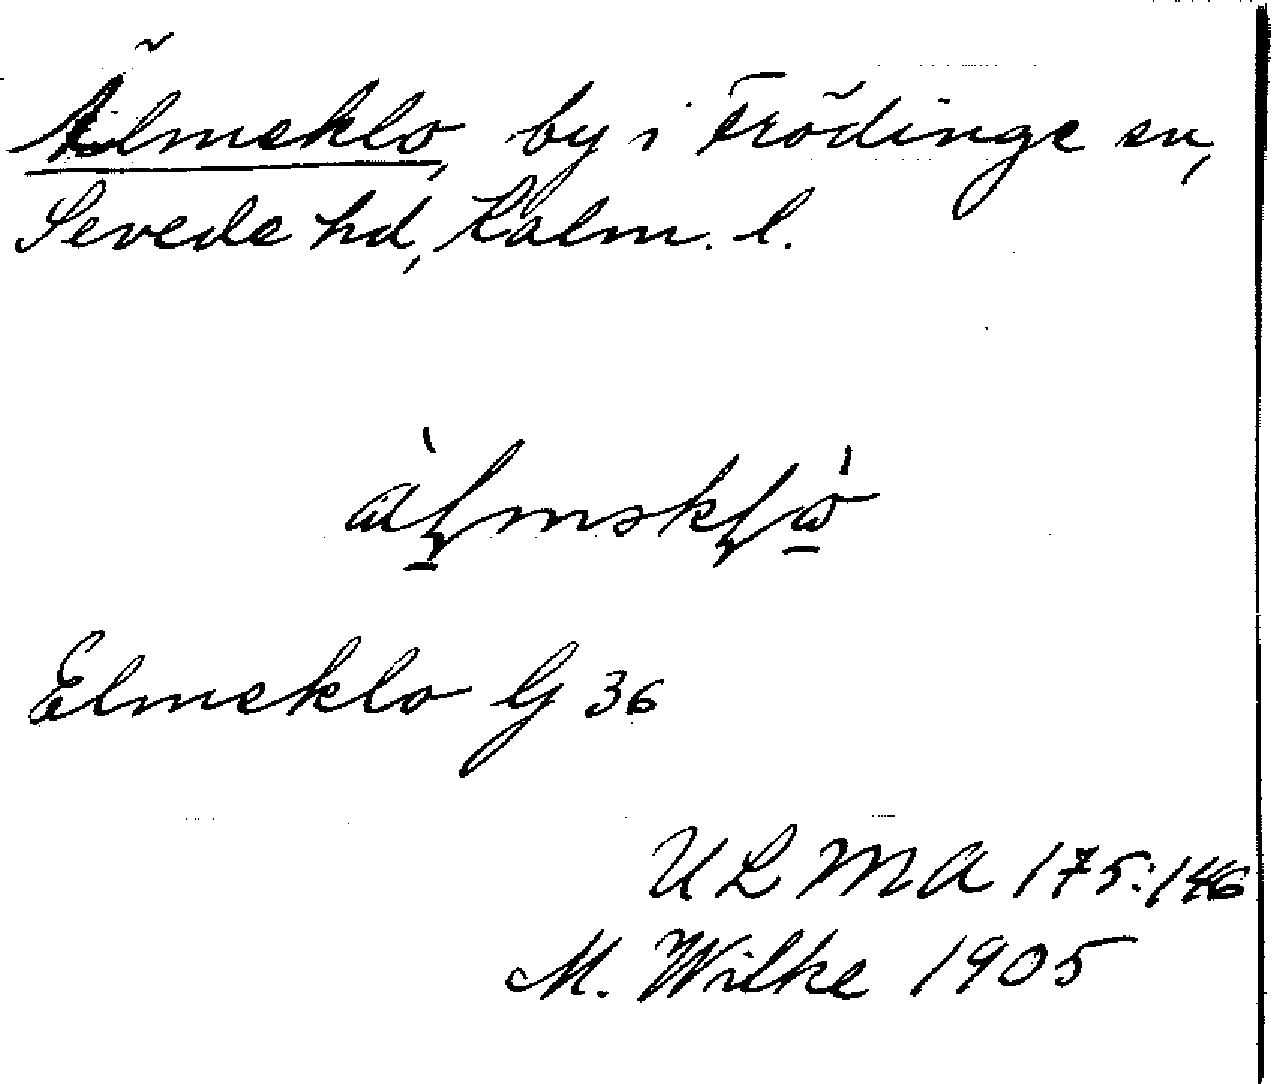 Älmeklo, by i Frödinge sn,
Sevede hd, Kalm. l.
Elmeklo G 36
ULMA 175:146
M. Wilke 1905